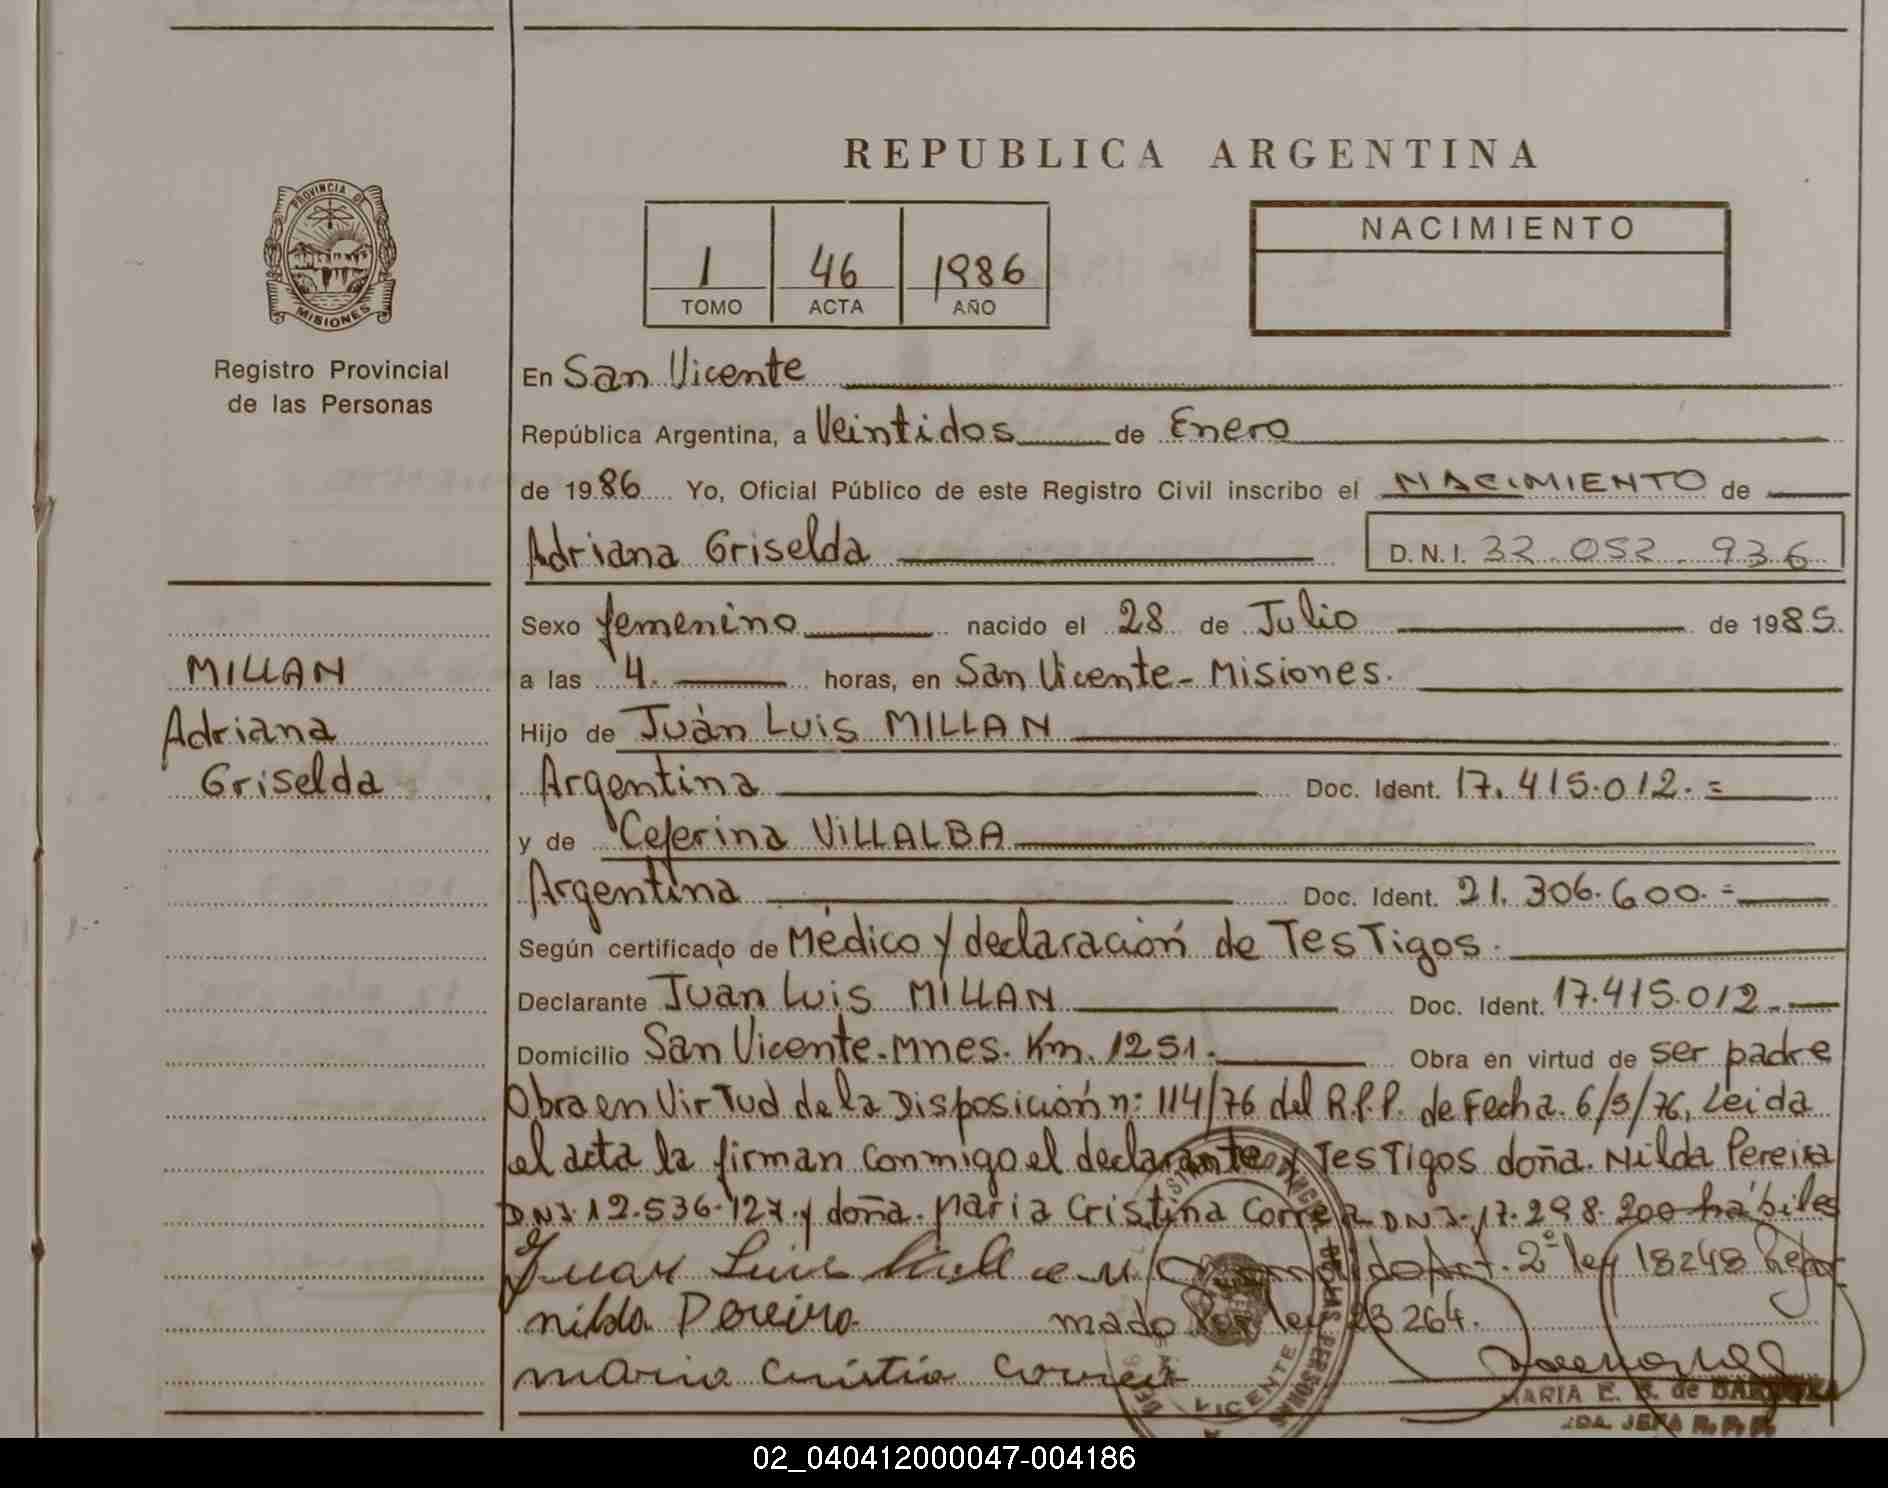 REPUBLICA ARGENTINA
PROVINCIA DE
MISIONES
Registro Provincial
de las Personas
1 46 1986
TOMO ACTA AÑO
NACIMIENTO
En San Vicente
República Argentina, a Veintidos de Enero
de 1986 Yo, Oficial Público de este Registro Civil inscribo el NACIMIENTO de
Adriana Griselda D.N.I. 32.052.936
MILLAN
Adriana
Griselda
Sexo femenino nacido el 28 de Julio de 1985.
a las 4. horas, en San Vicente - Misiones.
Hijo de Juàn Luis MILLAN
Argentina Doc. Ident. 17.415.012. =
y de Ceferina VILLALBA
Argentina Doc. Ident. 21.306.600. =
Según certificado de Médico y declaración de TesTigos.
Declarante Juan Luis MILLAN Doc. Ident. 17.415.012.
Domicilio San Vicente. Mnes. Km. 1251. Obra en virtud de ser padre
Obra en VirTud de la Disposición n: 114/76 del R.P.P. de Fecha. 6/5/76, Leida
el acta la firman conmigo el declarante y TesTigos doña. Nilda Pereira
D.N.I. 12.536.127. y doña. Maria Cristina Correa DNI. 17.298.200 hábiles
Juan Luis Art. 2º ley 18248 Refor
nilda Pereira mado Por ley 23264.
maria Cristia Correa
VICENTE
MARIA E. B. de
JEFA R.P.P.
02_040412000047-004186